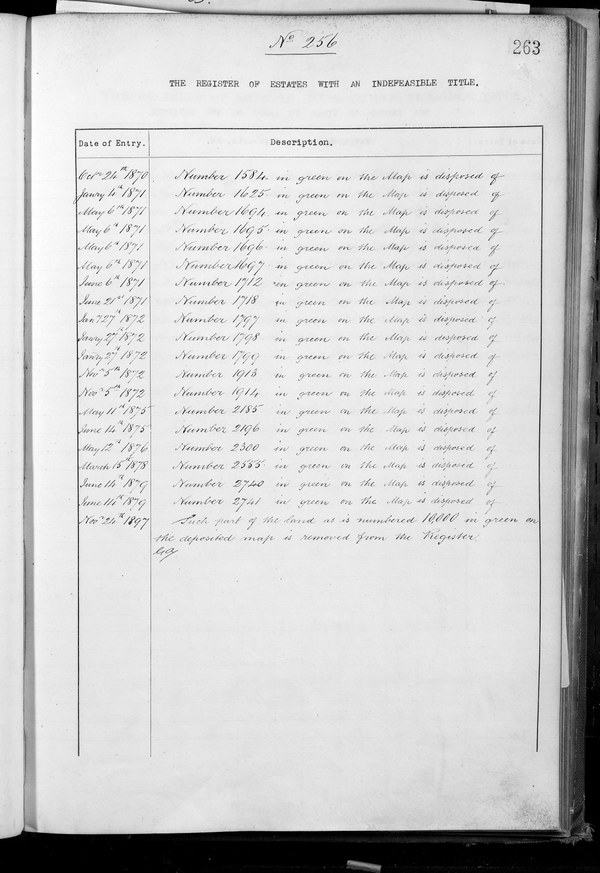 No 256
263
THE REGISTER OF ESTATES WITH AN INDEFEASIBLE TITLE.
Date of Entry. Description.
Octr 24th 1870 Number 1584 in green on the Map is disposed of
Janry 4th 1871 Number 1625 in green on the Map is disposed of
May 6th 1871 Number 1694 in green on the Map is disposed of
May 6th 1871 Number 1695 in green on the Map is disposed of
May 6th 1871 Number 1696 in green on the Map is disposed of
May 6th 1871 Number 1697 in green on the Map is disposed of
June 6th 1871 Number 1712 in green on the Map is disposed of
June 21st 1871 Number 1718 in green on the Map is disposed of
Jany 27th 1872 Number 1797 in green on the Map is disposed of
Janry 27th 1872 Number 1798 in green on the Map is disposed of
Janry 27th 1872 Number 1799 in green on the Map is disposed of
Novr 5th 1872 Number 1913 in green on the Map is disposed of
Novr 5th 1872 Number 1914 in green on the Map is disposed of
May 11th 1875 Number 2185 in green on the Map is disposed of
June 14th 1875 Number 2196 in green on the Map is disposed of
May 12th 1876 Number 2300 in green on the Map is disposed of
March 15th 1878 Number 2555 in green on the Map is disposed of
June 14th 1879 Number 2740 in green on the Map is disposed of
June 14th 1879 Number 2741 in green on the Map is disposed of
Novr 24th 1897 Such part of the land as is numbered 10,000 in green on
the deposited map is removed from the Register.